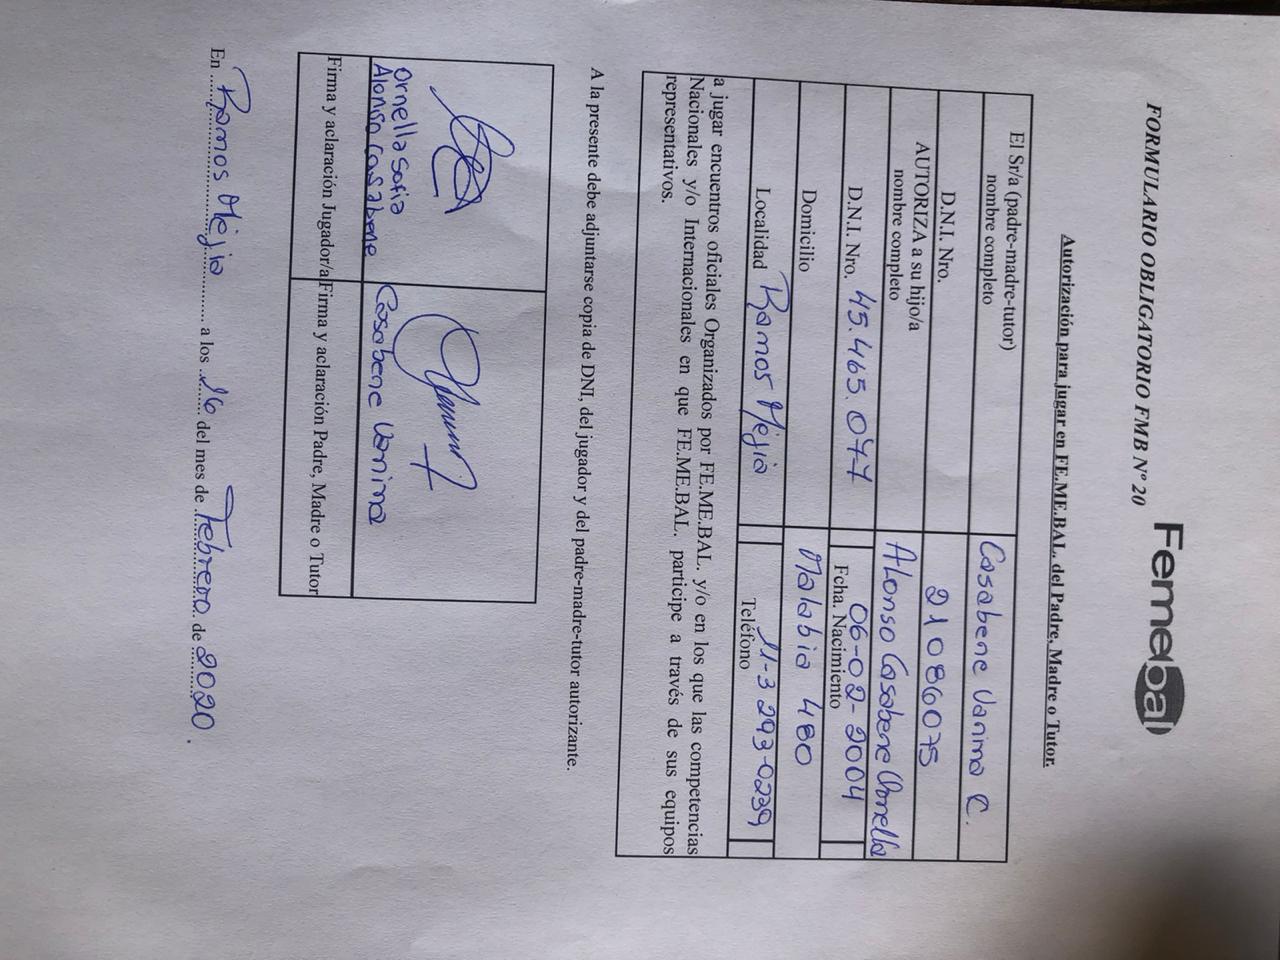 Femebal
FORMULARIO OBLIGATORIO FMB Nº 20
Autorización para jugar en FE.ME.BAL. del Padre, Madre o Tutor.
El Sr/a (padre-madre-tutor)
nombre completo
Casabene Vanina C.
D.N.I. Nro.
21086075
AUTORIZA a su hijo/a
nombre completo
Alonso Casabene Ornella
D.N.I. Nro. 45.465.077
Fcha. Nacimiento
06-02-2004
Domicilio
Malabia 480
Localidad Ramos Mejia
Teléfono
11-3293-0239
a jugar encuentros oficiales Organizados por FE.ME.BAL. y/o en los que las competencias
Nacionales y/o Internacionales en que FE.ME.BAL. participe a través de sus equipos
representativos.
A la presente debe adjuntarse copia de DNI, del jugador y del padre-madre-tutor autorizante.
Ornella Sofia
Alonso Casabene
Casabene Vanina
Firma y aclaración Jugador/a
Firma y aclaración Padre, Madre o Tutor
En Ramos Mejia a los 16 del mes de Febrero de 2020.